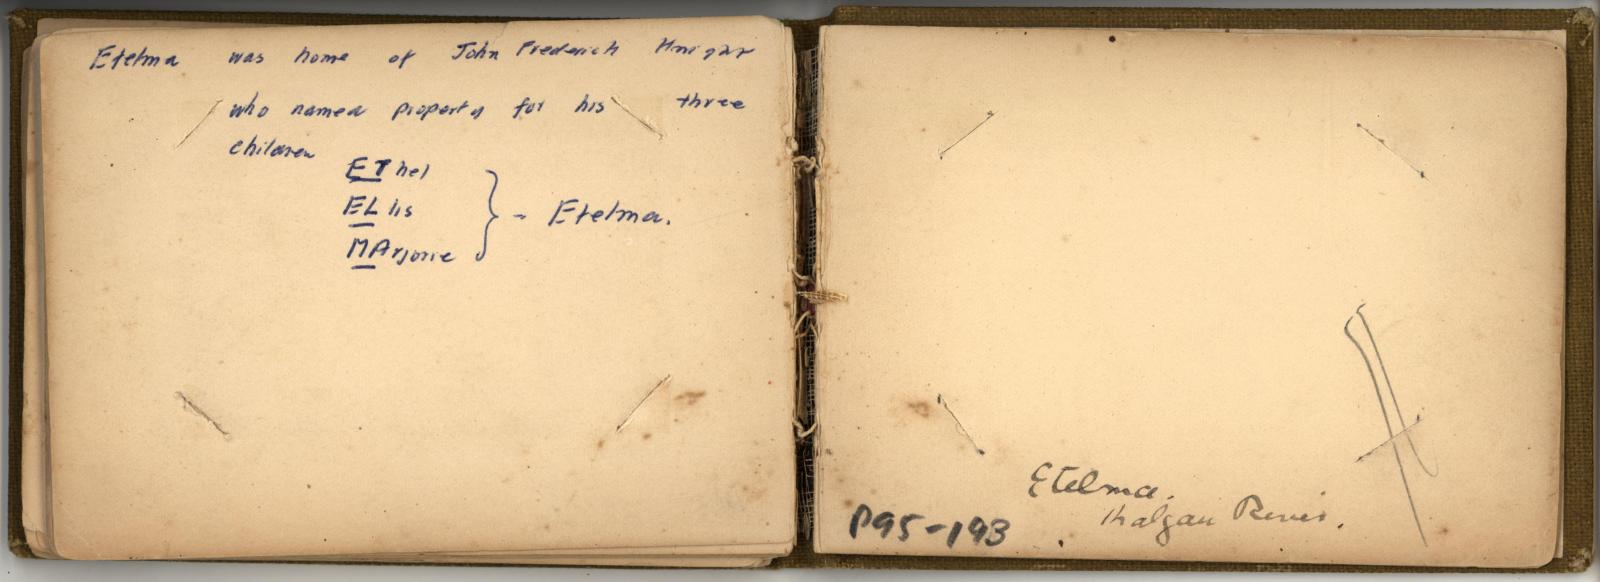 Etelma was home of John Frederick Knight
who named property for his three
children
EThel
ELlis
MArjorie
} - Etelma.
Etelma.
Kalgan River.
P95-193